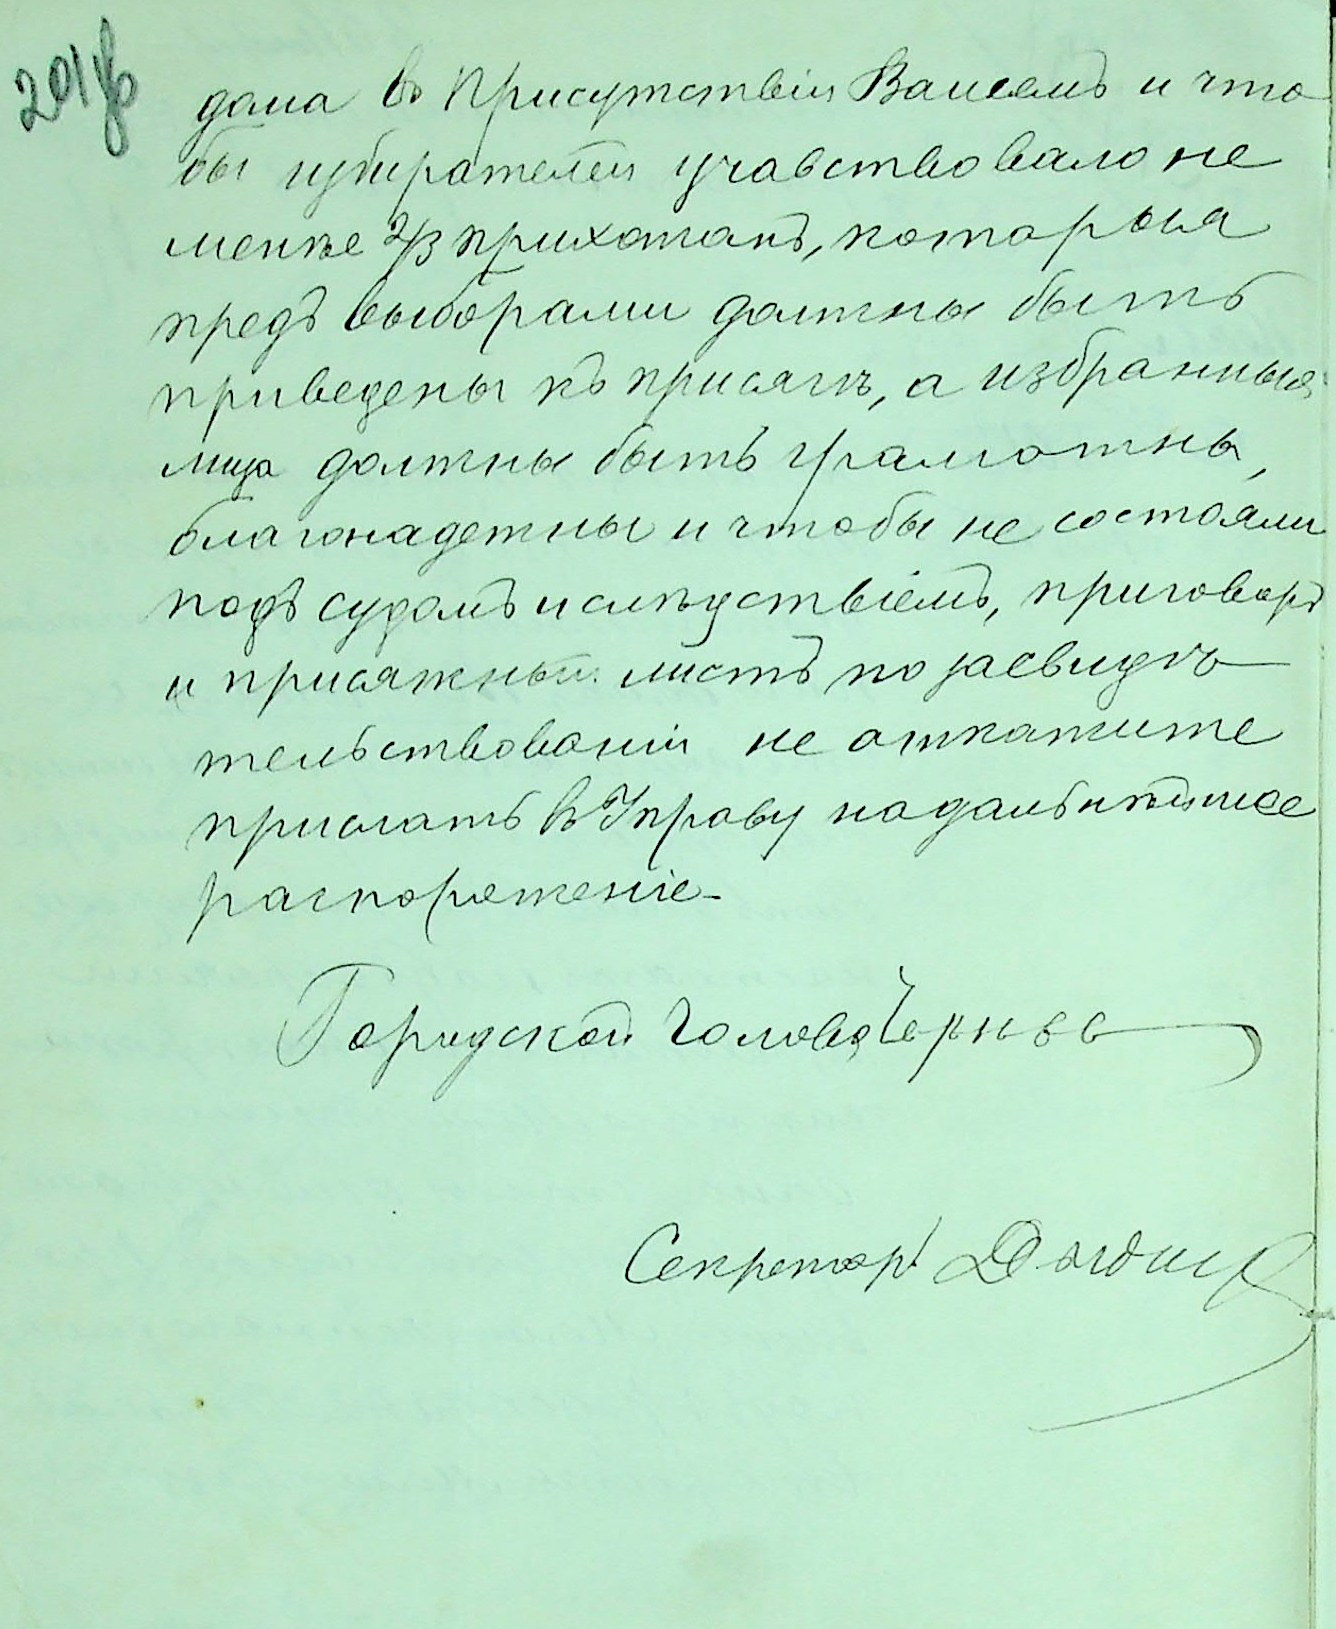 201 об
дома въ присутствіи Вашемъ и что
бы избирателей учавствовало не
менѣе 2/3 прихожанъ, которыя
предъ выборами должны быть
приведены къ присягѣ, а избранныя
лица должны быть грамотны,
благонадежны и чтобы не состояли
подъ судомъ и слѣдствіемъ, приговоръ
и присяжный листъ по засвидѣ
тельствованіи не откажите
прислать въ Управу на дальнѣйшее
распоряженіе
Городской Голова Чернов
Секретарь